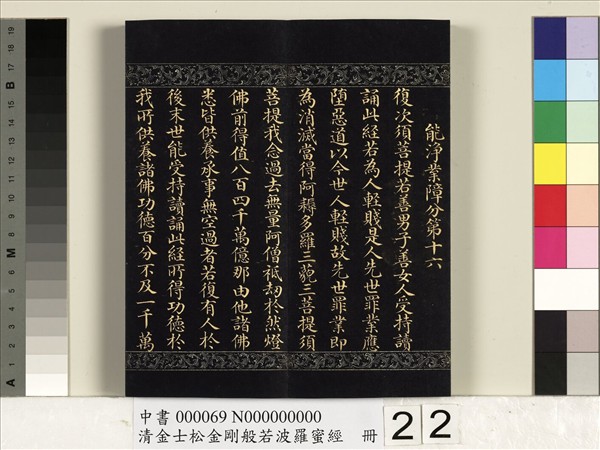 能淨業障分第十六
復次須菩提若善男子善女人受持讀
誦此經若為人輕賤是人先世罪業應
墮惡道以今世人輕賤故先世罪業即
為消滅當得阿耨多羅三藐三菩提須
菩提我念過去無量阿僧祇劫於然燈
佛前得值八百四千萬億那由他諸佛
悉皆供養承事無空過者若復有人於
後末世能受持讀誦此經所得功德於
我所供養諸佛功德百分不及一千萬
中書 000069 N000000000
清金士松金剛般若波羅蜜經 冊
22